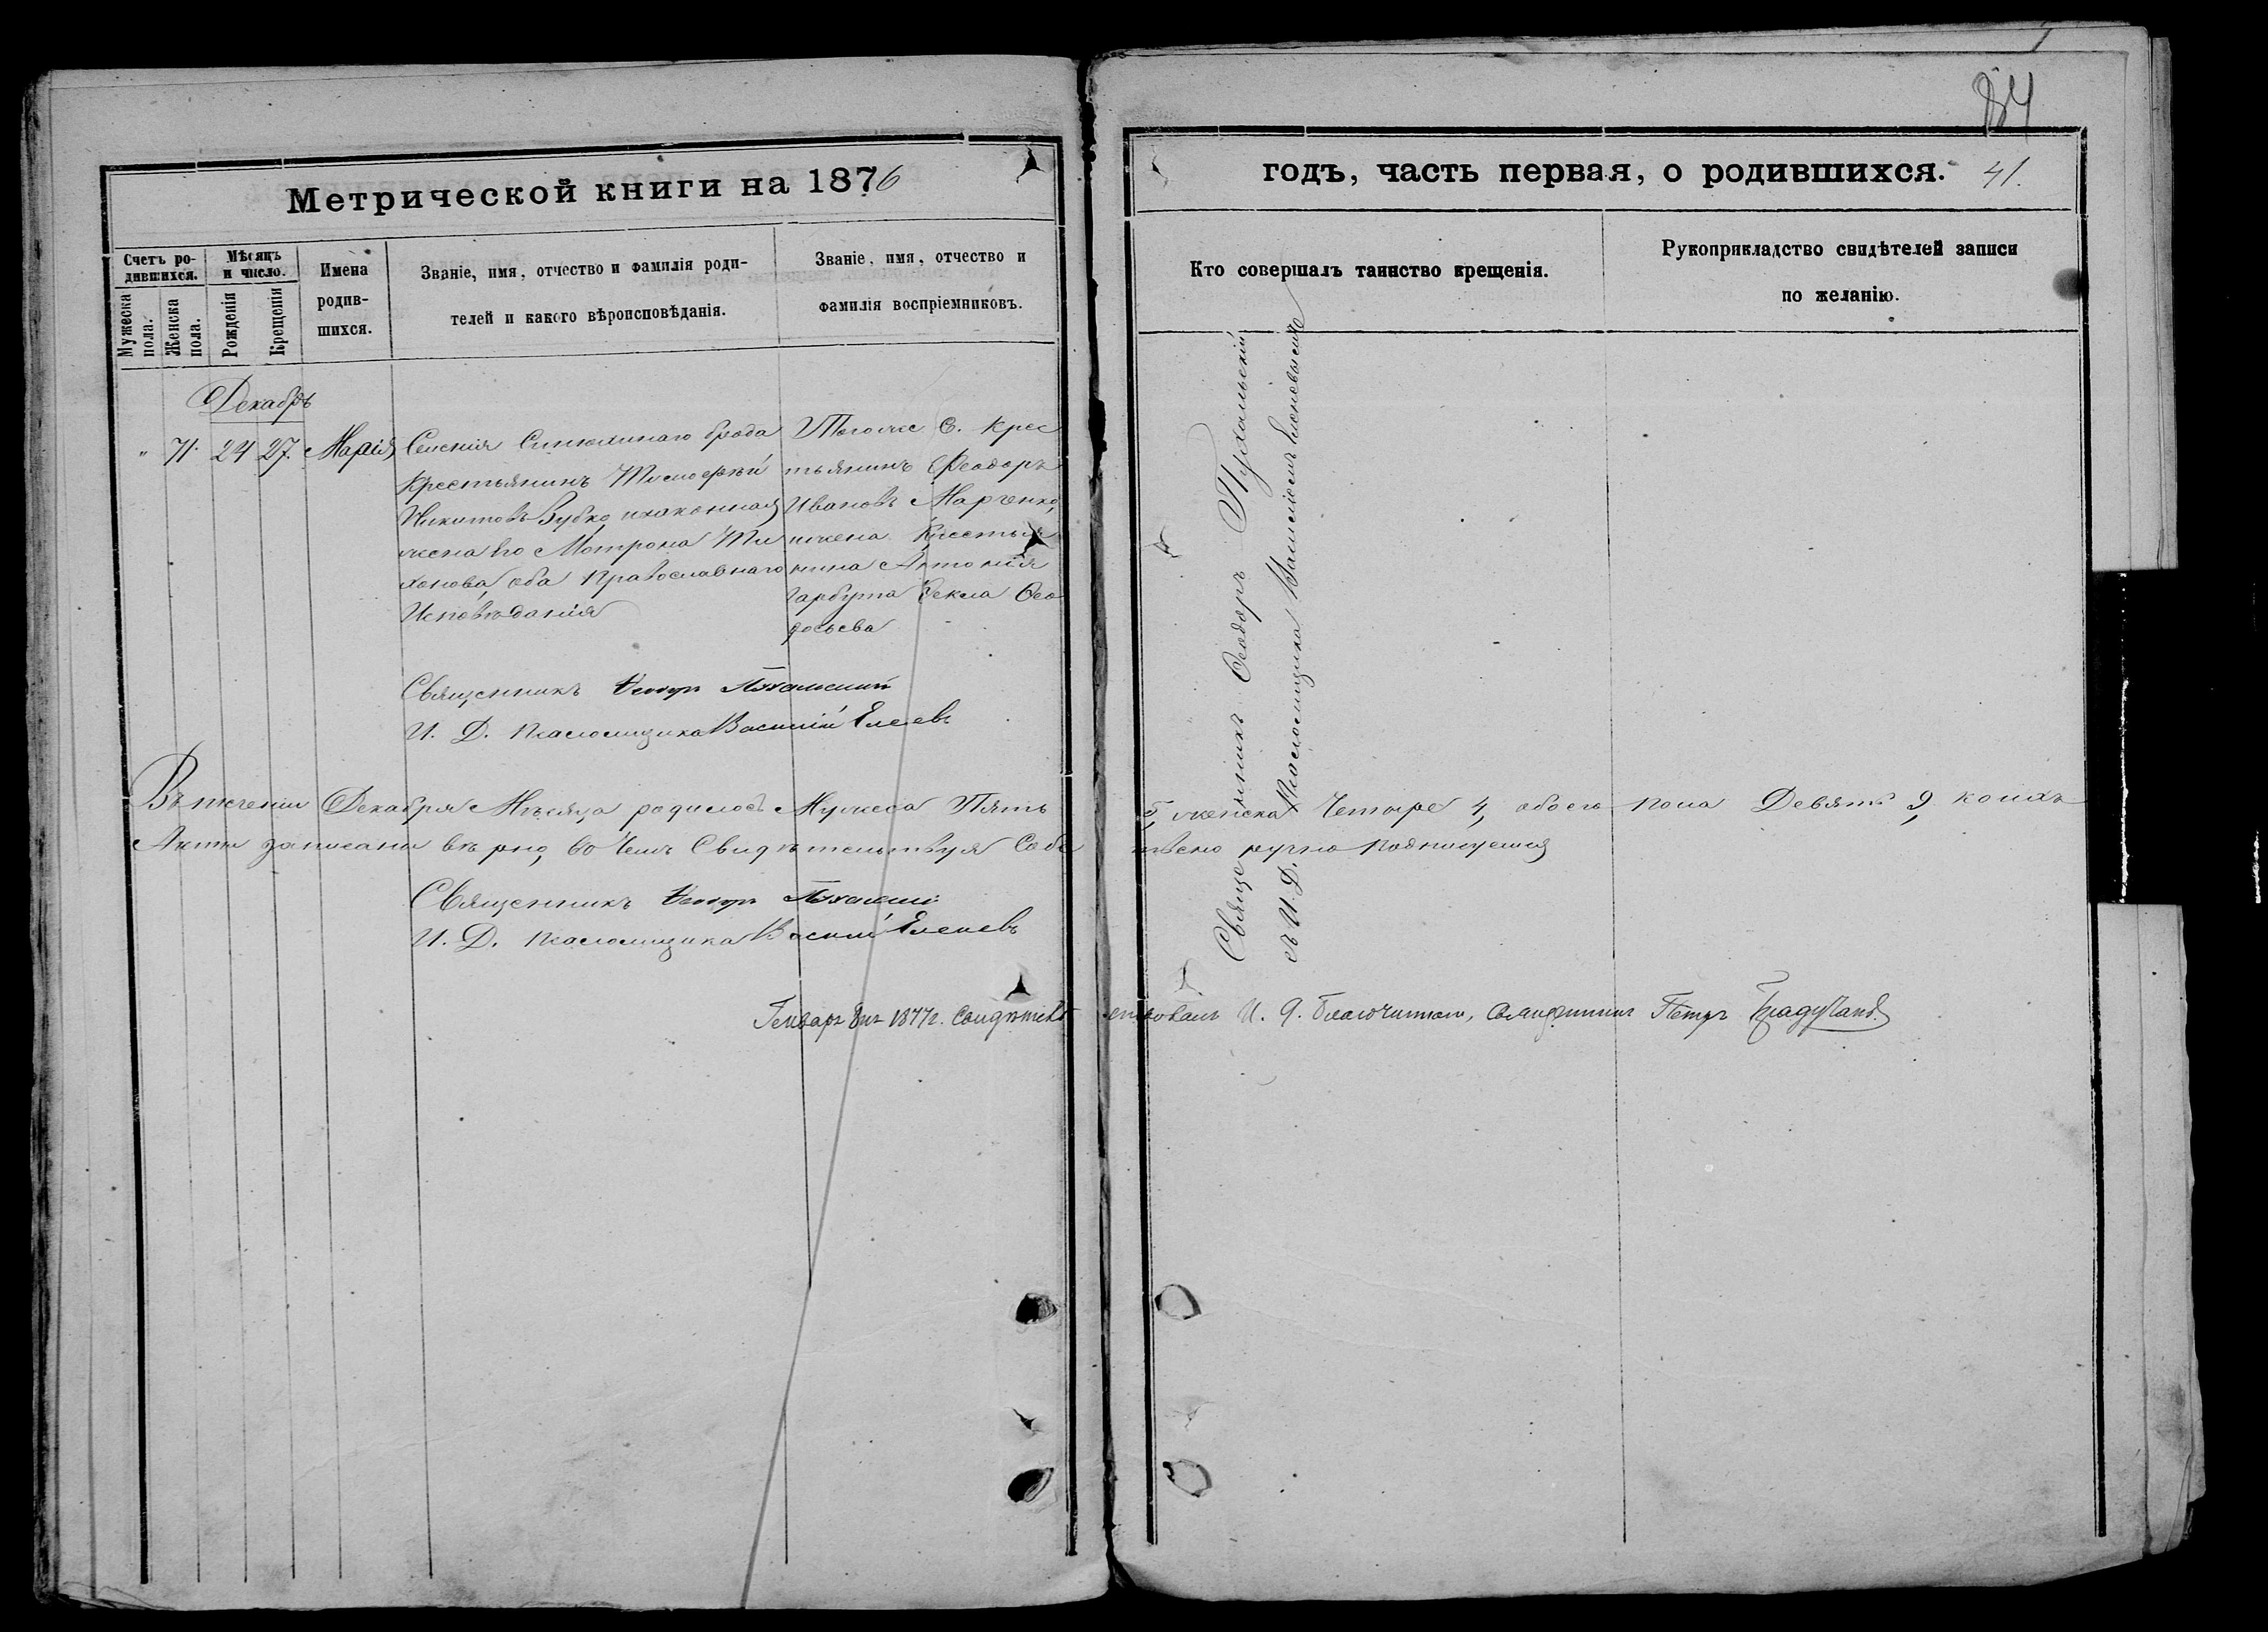 84
Метрической книги на 1876
годъ, часть первая, о родившихся. 41.
Счетъ родившихся.
Мужеска пола.
Женска пола.
Мѣсяцъ и число.
Рожденія
Крещенія
Имена
родив-
шихся.
Званіе, имя, отчество и фамилія роди-
телей и какого вѣроисповѣданія.
Званіе, имя, отчество и
фамилія воспріемниковъ.
Кто совершалъ таинство крещенія.
Рукоприкладство свидѣтелей записи
по желанію.
Декабрь
" 71. 24 27. Марія
Селенія Синюхинаго брода
Крестьянинъ Тимофѣй
Никитовъ Зубко, и законная
жена его Мотрона Ти
хонова, оба Православнаго
Исповѣданія
Тогоже С. Крес
тьянинъ Феодоръ
Ивановъ Марченко,
и жена Крестья
нина Антонія
Гарбуза Фекла Фео
досьева
Священникъ Феодоръ
съ И. Д. Псаломщика Василіемъ
Священникъ Феодоръ
И. Д. Псаломщика Василій Елеевъ
Въ теченіи Декабря Мѣсяца родилось Мужеска Пять 5, женска Четыре 4, обоего пола Девять 9, коихъ
Акты записаны вѣрно, во чемъ Свидѣтельствуя Собс твено ручно подписуемся
Священникъ Феодоръ
И. Д. Псаломщика Василій
Генваря 8 дня 1877 г. Свидѣтель ствовалъ И. д. Благочиннаго, Священникъ Петръ